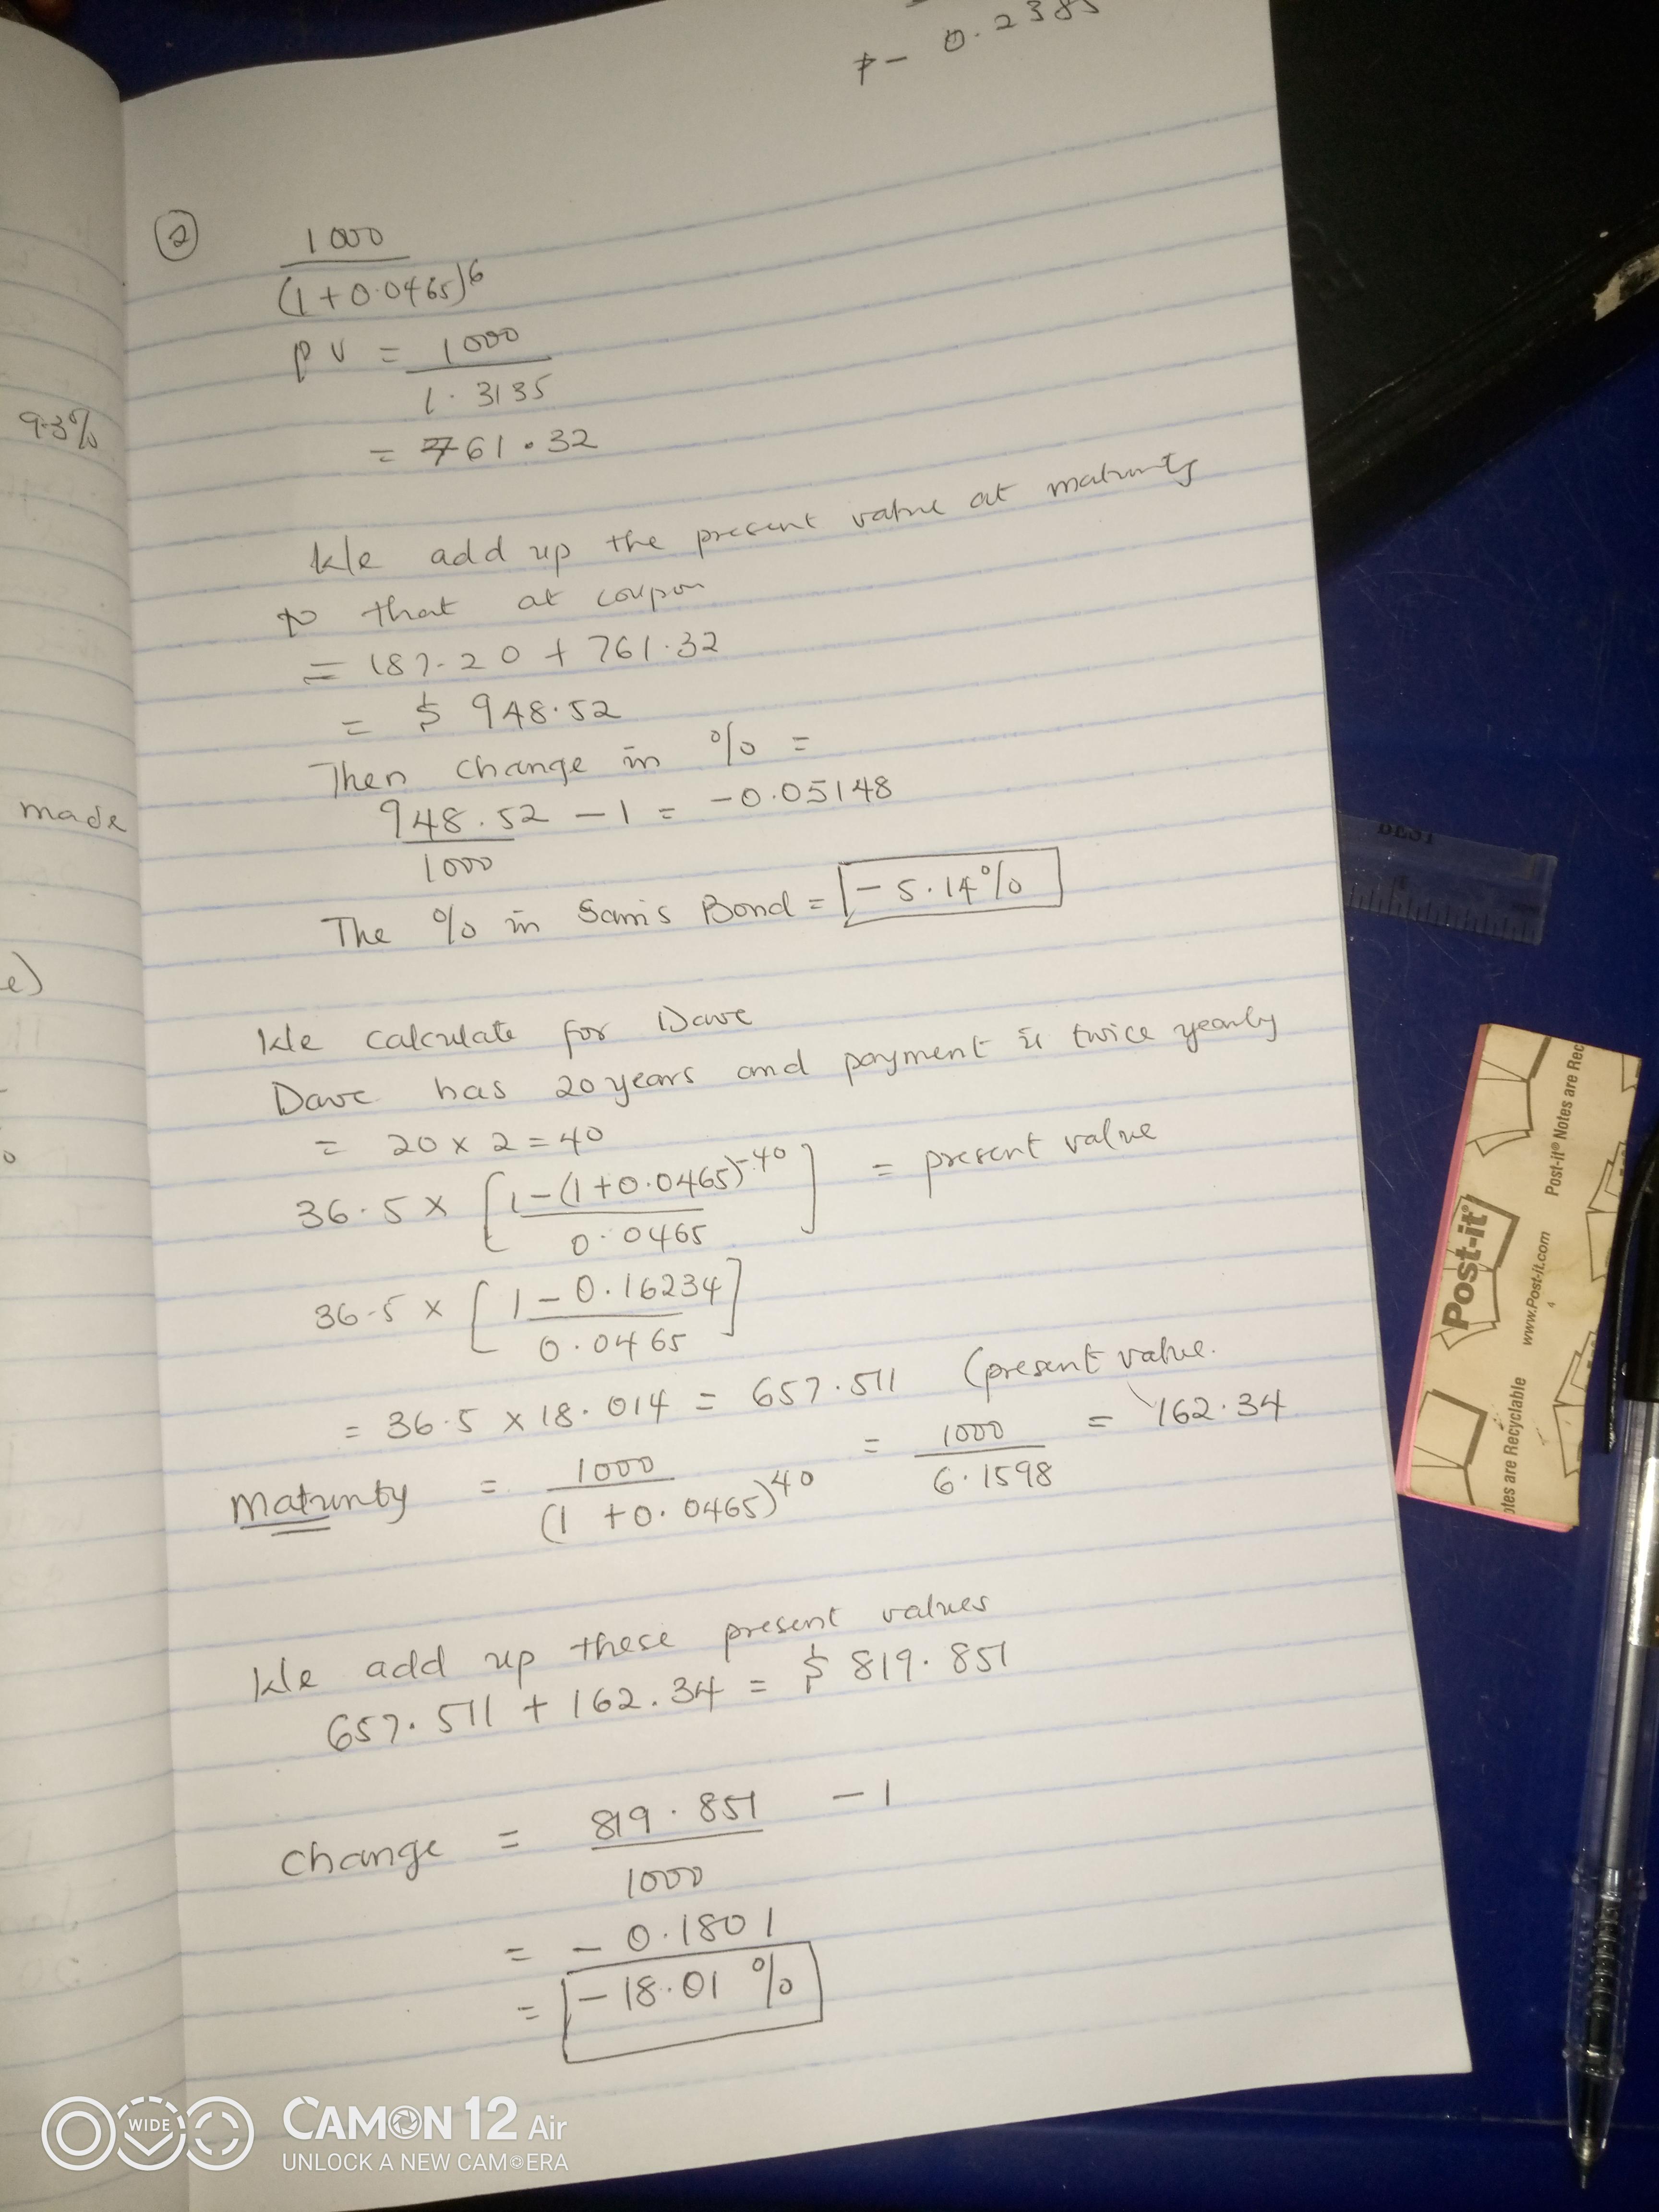 r - 0.2385
②
1000
(1+0.0465)^6
PV = 1000
1.3135
= 761.32
We add up the present value at maturity
to that at coupon
= 187.20 + 761.32
= $ 948.52
Then change in % =
948.52 - 1 = -0.05148
1000
The % in Sam's Bond = -5.14%
We calculate for Dave
Dave has 20 years and payment is twice yearly
= 20 x 2 = 40
36.5 x [1-(1+0.0465)^-40] = present value
0.0465
36.5 x [1 - 0.16234]
0.0465
= 36.5 x 18.014 = 657.511 (present value.
Maturity = 1000 = 1000 = 162.34
(1 + 0.0465)^40 6.1598
We add up these present values
657.511 + 162.34 = $ 819.851
Change = 819.851 - 1
1000
= - 0.1801
= -18.01 %
93%
made
e)
BEST
Post-it® Notes are Rec
Post-it®
www.Post-it.com
4
otes are Recyclable
WIDE
CAMON 12 Air
UNLOCK A NEW CAMERA